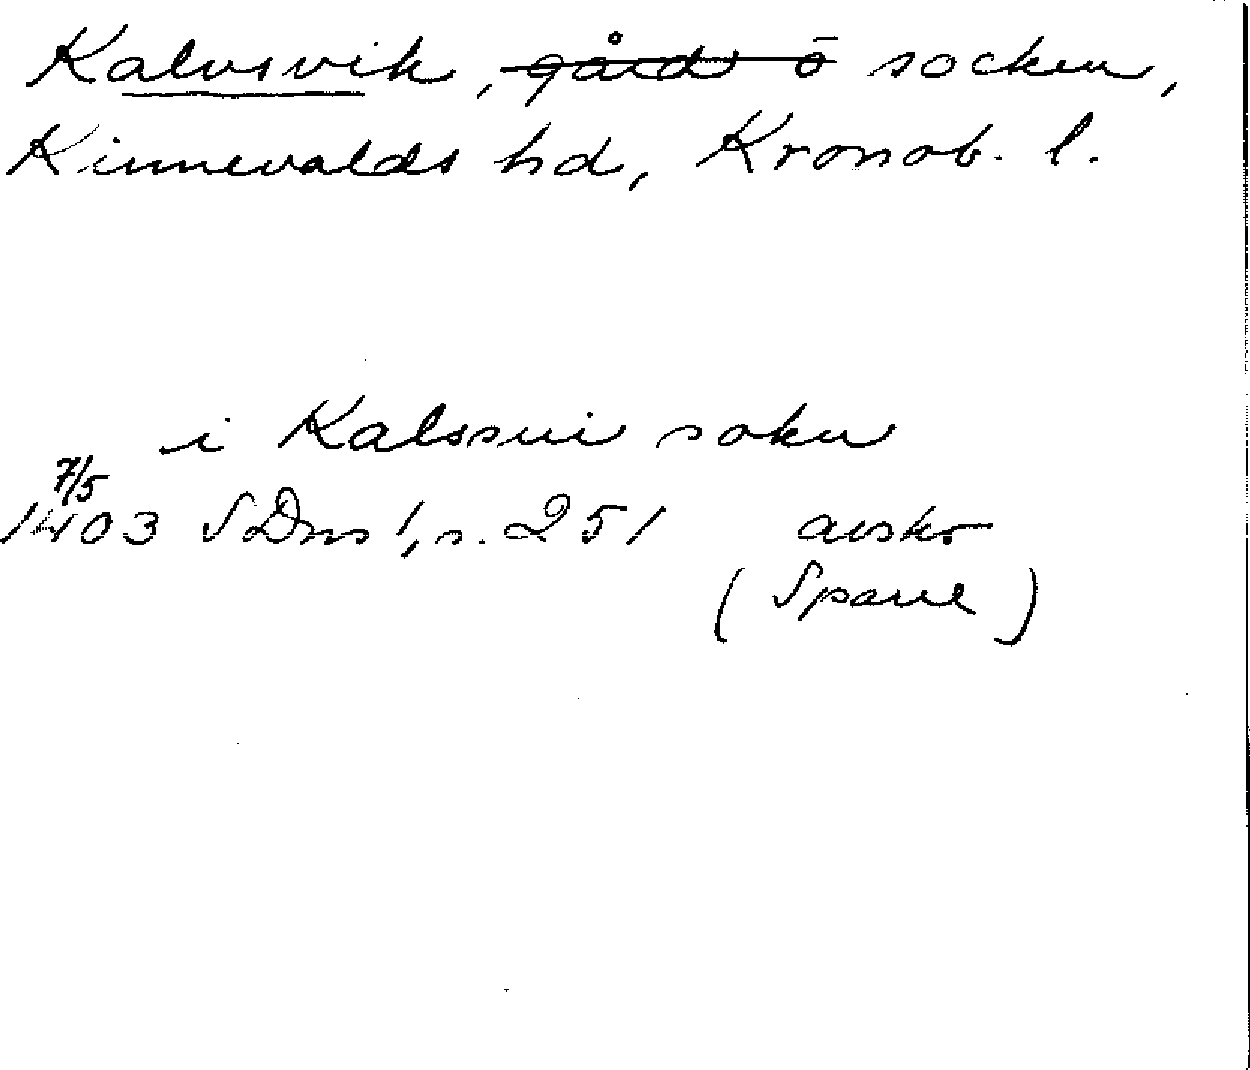 Kalvsvik, gård o socken,
Kinnevalds hd, Kronob. l.
i Kalssui sokn
7/5
1403 SDns 1, s. 251 avskr
(Sparre)